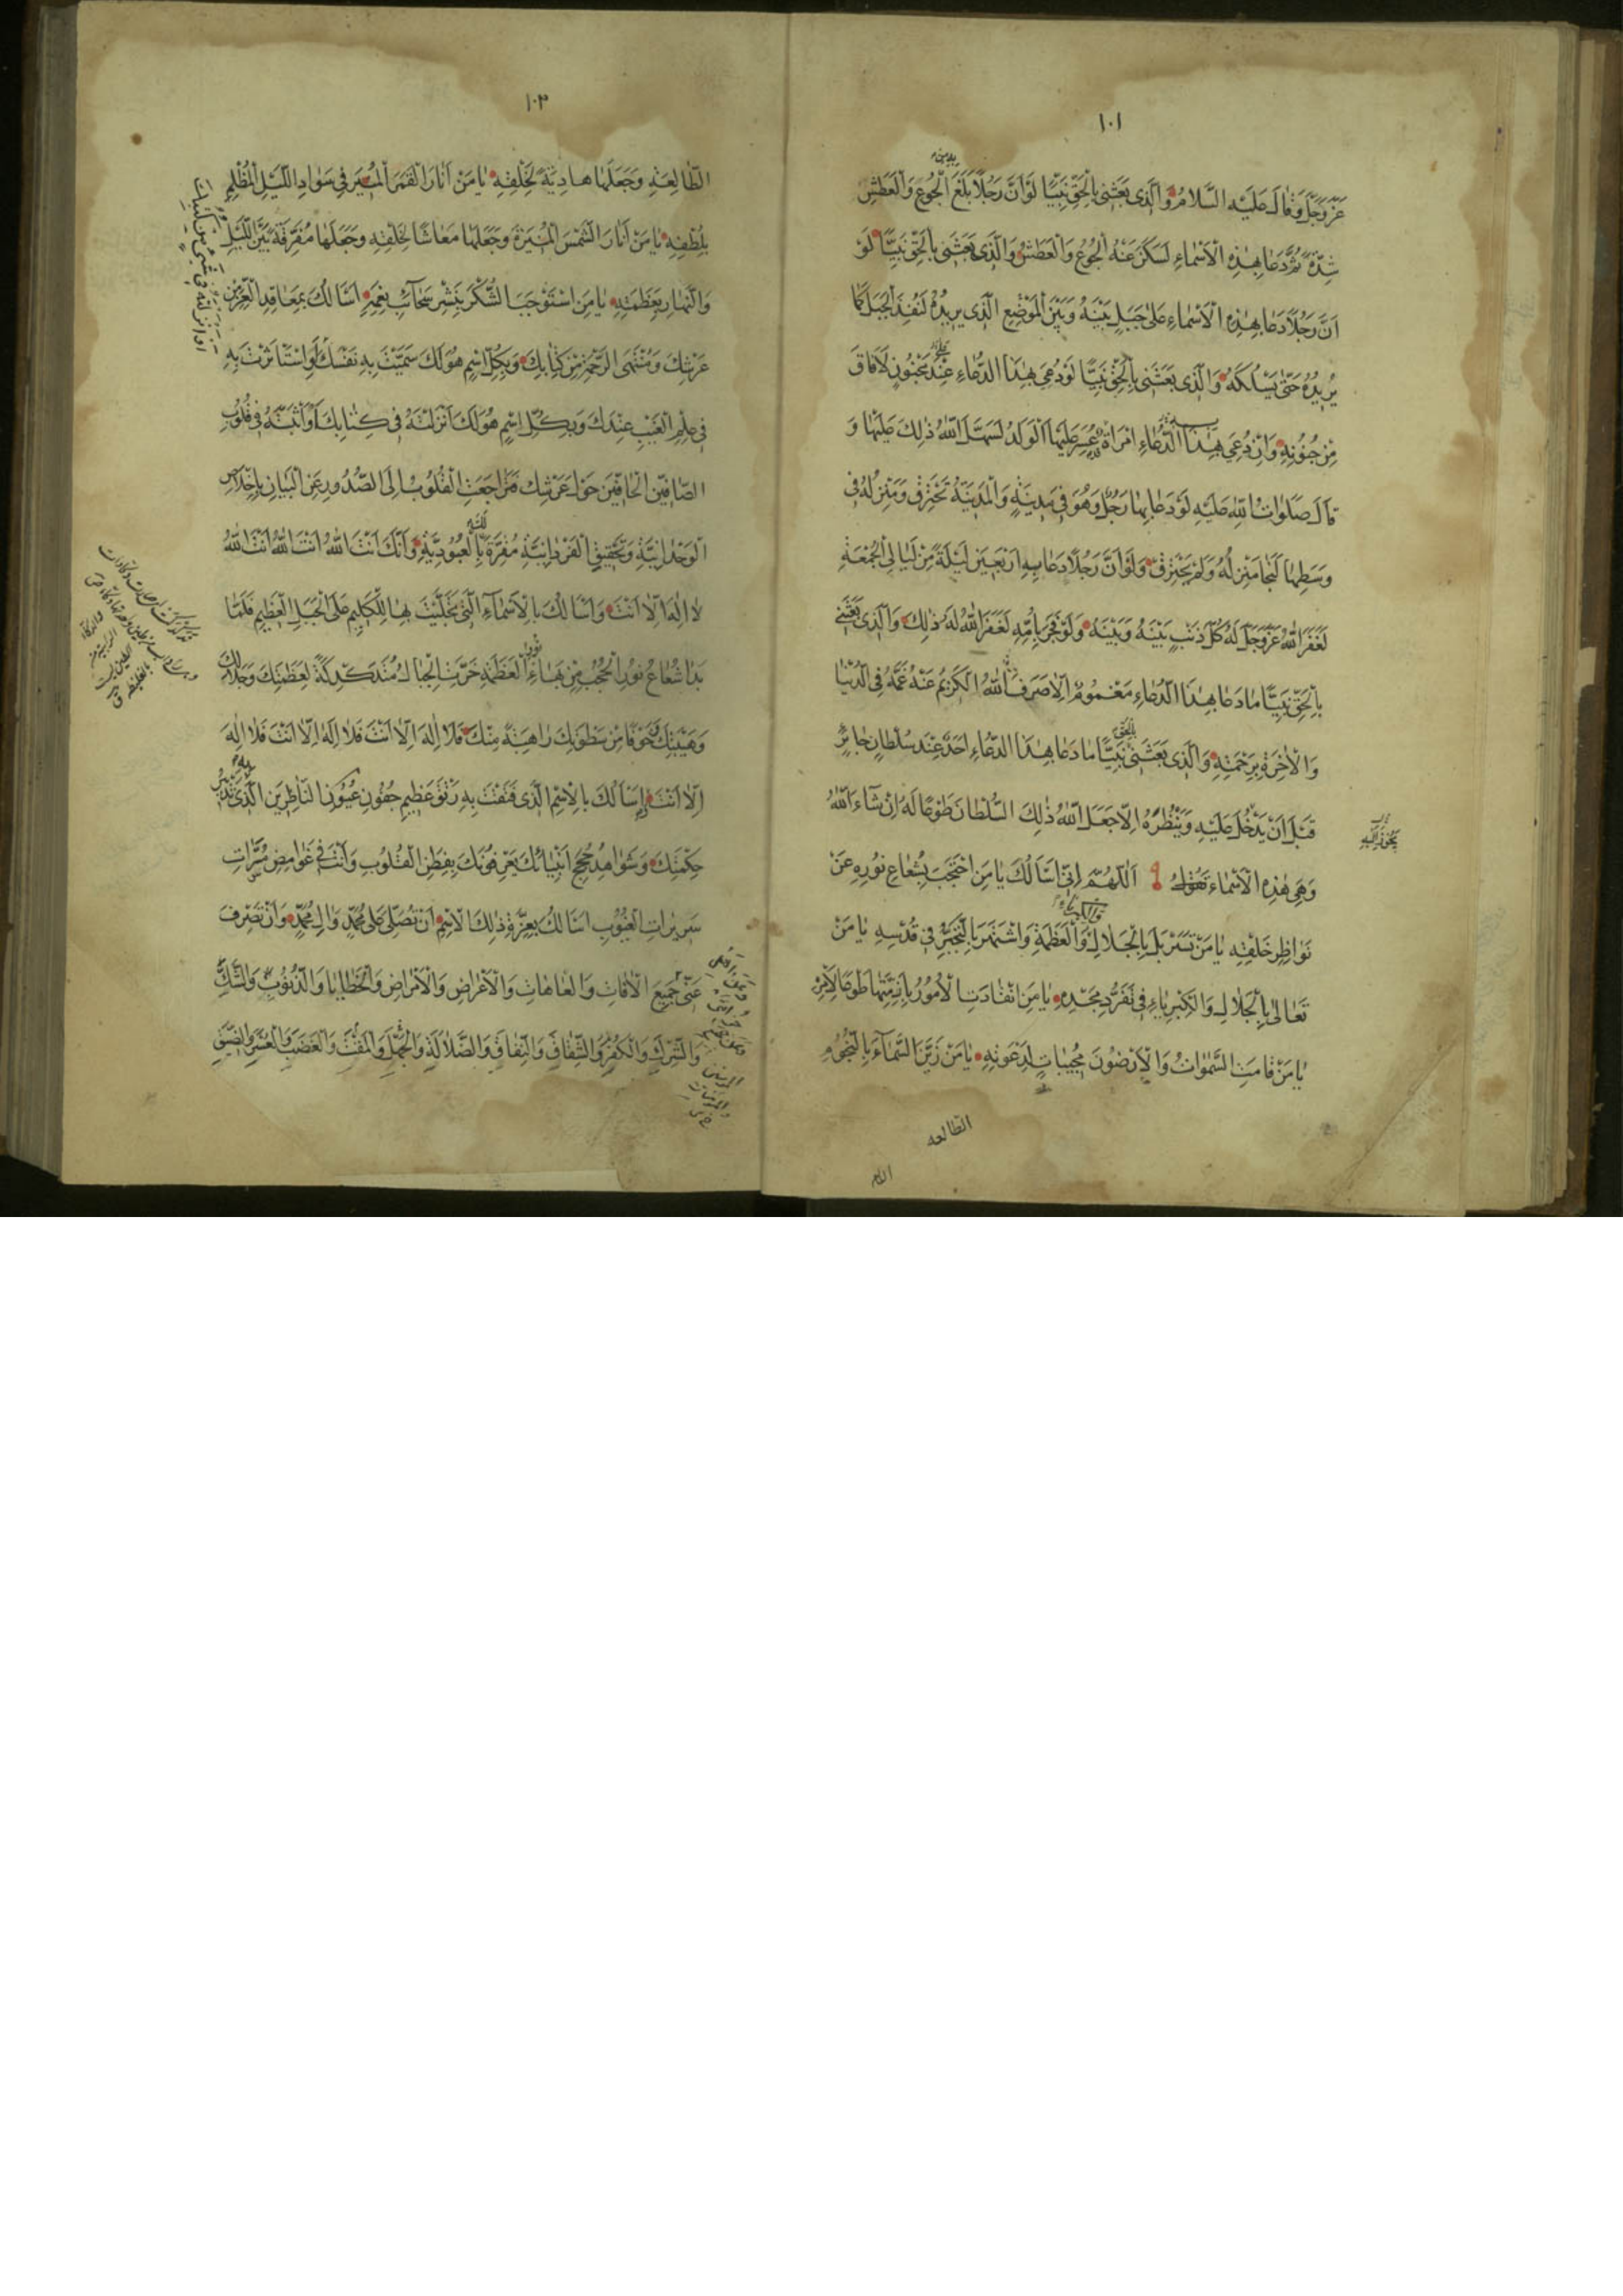 ١٠١
عَزَّ وَجَلَّ وَقَالَ عَلَيْهِ السَّلَامُ وَالَّذِي بَعَثَنِي بِالْحَقِّ نَبِيًّا لَوْ اَنَّ رَجُلًا بَلَغَ الْجُوعَ وَالْعَطَشَ
شِدَّةً ثُمَّ دَعَا بِهٰذِهِ الْاَسْمَاءِ لَسَكَنَ عَنْهُ الْجُوعُ وَالْعَطَشُ وَالَّذِي بَعَثَنِي بِالْحَقِّ نَبِيًّا لَوْ
اَنَّ رَجُلًا دَعَا بِهٰذِهِ الْاَسْمَاءِ عَلٰى جَبَلٍ بَيْنَهُ وَبَيْنَ الْمَوْضِعِ الَّذِي يُرِيدُهُ لَنَفَذَ الْجَبَلَ كَمَا
يُرِيدُهُ حَتّٰى يَسْلُكَهُ وَالَّذِي بَعَثَنِي بِالْحَقِّ نَبِيًّا لَوْ دُعِيَ بِهٰذَا الدُّعَاءِ عِنْدَ مَجْنُونٍ لَاَفَاقَ
مِنْ جُنُونِهِ وَاِنْ دُعِيَ بِهٰذَا الدُّعَاءِ امْرَاَةٌ عَسُرَ عَلَيْهَا الْوَلَدُ لَسَهَّلَ اللّٰهُ ذٰلِكَ عَلَيْهَا وَ
قَالَ صَلَوَاتُ اللّٰهِ عَلَيْهِ لَوْ دَعَا بِهَا رَجُلٌ وَهُوَ فِي مَدِينَةٍ وَالْمَدِينَةُ تَحْتَرِقُ وَمَنْزِلُهُ فِي
وَسَطِهَا لَنَجَا مَنْزِلُهُ وَلَمْ يَحْتَرِقْ وَلَوْ اَنَّ رَجُلًا دَعَا بِهِ اَرْبَعِينَ لَيْلَةً مِنْ لَيَالِي الْجُمْعَةِ
لَغَفَرَ اللّٰهُ عَزَّ وَجَلَّ لَهُ كُلَّ ذَنْبٍ بَيْنَهُ وَبَيْنَهُ وَلَوْ فَجَرَ بِاُمِّهِ لَغَفَرَ اللّٰهُ لَهُ ذٰلِكَ وَالَّذِي بَعَثَنِي
بِالْحَقِّ نَبِيًّا مَا دَعَا بِهٰذَا الدُّعَاءِ مَغْمُومٌ اِلَّا صَرَفَ اللّٰهُ الْكَرِيمُ عَنْهُ غَمَّهُ فِي الدُّنْيَا
وَالْاٰخِرَةِ بِرَحْمَتِهِ وَالَّذِي بَعَثَنِي بِالْحَقِّ نَبِيًّا مَا دَعَا بِهٰذَا الدُّعَاءِ اَحَدٌ عِنْدَ سُلْطَانٍ جَائِرٍ
قَبْلَ اَنْ يَدْخُلَ عَلَيْهِ وَيَنْظُرَهُ اِلَّا جَعَلَ اللّٰهُ ذٰلِكَ السُّلْطَانَ طَوْعًا لَهُ اِنْ شَاءَ اللّٰهُ
وَهِيَ هٰذِهِ الْاَسْمَاءُ تَقُولُ اَللّٰهُمَّ اِنِّي اَسْاَلُكَ يَا مَنِ احْتَجَبَ بِشُعَاعِ نُورِهِ عَنْ
نَوَاظِرِ خَلْقِهِ يَا مَنْ تَسَرْبَلَ بِالْجَلَالِ وَالْعَظَمَةِ وَاشْتَهَرَ بِالتَّجَبُّرِ فِي قُدْسِهِ يَا مَنْ
تَعَالٰى بِالْجَلَالِ وَالْكِبْرِيَاءِ فِي تَفَرُّدِ مَجْدِهِ يَا مَنِ انْقَادَتِ الْاُمُورُ بِاَزِمَّتِهَا طَوْعًا لِاَمْرِهِ
يَا مَنْ قَامَتِ السَّمٰوَاتُ وَالْاَرَضُونَ مُجِيبَاتٍ لِدَعْوَتِهِ يَا مَنْ زَيَّنَ السَّمَاءَ بِالنُّجُومِ
الطالعه
١٠٢
الطَّالِعَةِ وَجَعَلَهَا هَادِيَةً لِخَلْقِهِ يَا مَنْ اَنَارَ الْقَمَرَ الْمُنِيرَ فِي سَوَادِ اللَّيْلِ الْمُظْلِمِ
بِلُطْفِهِ يَا مَنْ اَنَارَ الشَّمْسَ الْمُنِيرَةَ وَجَعَلَهَا مَعَاشًا لِخَلْقِهِ وَجَعَلَهَا مُفَرِّقَةً بَيْنَ اللَّيْلِ
وَالنَّهَارِ بِعَظَمَتِهِ يَا مَنِ اسْتَوْجَبَ الشُّكْرَ بِنَشْرِ سَحَائِبِ نِعَمِهِ اَسْاَلُكَ بِمَعَاقِدِ الْعِزِّ مِنْ
عَرْشِكَ وَمُنْتَهَى الرَّحْمَةِ مِنْ كِتَابِكَ وَبِكُلِّ اسْمٍ هُوَ لَكَ سَمَّيْتَ بِهِ نَفْسَكَ اَوِ اسْتَاْثَرْتَ بِهِ
فِي عِلْمِ الْغَيْبِ عِنْدَكَ وَبِكُلِّ اسْمٍ هُوَ لَكَ اَنْزَلْتَهُ فِي كِتَابِكَ اَوْ اَثْبَتَّهُ فِي قُلُوبِ
الصَّافِّينَ الْحَافِّينَ حَوْلَ عَرْشِكَ فَتَرَاجَعَتِ الْقُلُوبُ اِلَى الصُّدُورِ عَنِ الْبَيَانِ بِاِخْلَاصِ
الْوَحْدَانِيَّةِ وَتَحْقِيقِ الْفَرْدَانِيَّةِ مُقِرَّةً بِالْعُبُودِيَّةِ وَاَنَّكَ اَنْتَ اللّٰهُ اَنْتَ اللّٰهُ اَنْتَ اللّٰهُ
لَا اِلٰهَ اِلَّا اَنْتَ وَاَسْاَلُكَ بِالْاَسْمَاءِ الَّتِي تَجَلَّيْتَ بِهَا لِلْكَلِيمِ عَلَى الْجَبَلِ الْعَظِيمِ فَلَمَّا
بَدَا شُعَاعُ نُورِ الْحُجُبِ مِنْ بَهَاءِ الْعَظَمَةِ خَرَّتِ الْجِبَالُ مُتَدَكْدِكَةً لِعَظَمَتِكَ وَجَلَالِكَ
وَهَيْبَتِكَ وَخَوْفًا مِنْ سَطْوَتِكَ رَاهِبَةً مِنْكَ فَلَا اِلٰهَ اِلَّا اَنْتَ فَلَا اِلٰهَ اِلَّا اَنْتَ فَلَا اِلٰهَ
اِلَّا اَنْتَ وَاَسْاَلُكَ بِالْاِسْمِ الَّذِي فَتَقْتَ بِهِ رَتْقَ عَظِيمِ جُفُونِ عُيُونِ النَّاظِرِينَ الَّذِي تَدْبِيرُ
حِكْمَتِكَ وَشَوَاهِدُ حُجَجِ اَنْبِيَائِكَ يَعْرِفُونَكَ بِفِطَنِ الْقُلُوبِ وَاَنْتَ فِي غَوَامِضِ مُسَرَّاتِ
سَرِيرَاتِ الْغُيُوبِ اَسْاَلُكَ بِعِزَّةِ ذٰلِكَ الْاِسْمِ اَنْ تُصَلِّيَ عَلٰى مُحَمَّدٍ وَاٰلِ مُحَمَّدٍ وَاَنْ تَصْرِفَ
عَنِّي جَمِيعَ الْاٰفَاتِ وَالْعَاهَاتِ وَالْاَعْرَاضِ وَالْاَمْرَاضِ وَالْخَطَايَا وَالذُّنُوبِ وَالشَّكِّ
وَالشِّرْكِ وَالْكُفْرِ وَالشِّقَاقِ وَالنِّفَاقِ وَالضَّلَالَةِ وَالْجَهْلِ وَالْمَقْتِ وَالْغَضَبِ وَالْعُسْرِ وَالضِّيقِ